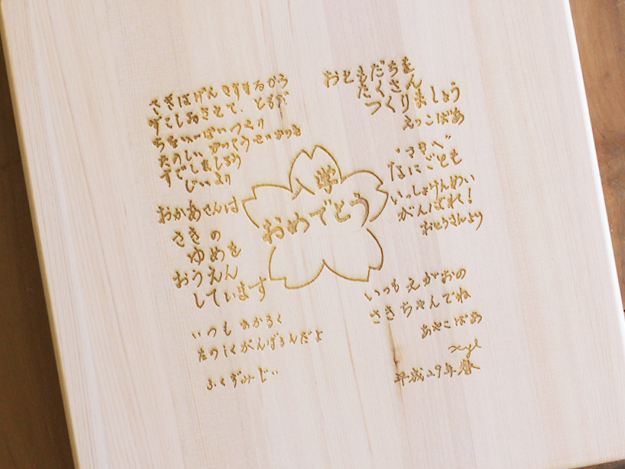 さきはげんきすぎるから
すこしおちついて、ともだ
ちをいっぱいつくり
たのしいがっこうせいかつを
すごしましょう
じいより
おともだちを
たくさん
つくりましょう
えつこばあ
入学
おめでとう
"さきへ"
なにごとも
いっしょうけんめい
がんばれ!
おとうさんより
おかあさんは
さきの
ゆめを
おうえん
しています
いつもえがおの
さきちゃんでね
あやこばあ
いつもあかるく
たのしくがんばるんだよ
ふくずみじい
平成29年春